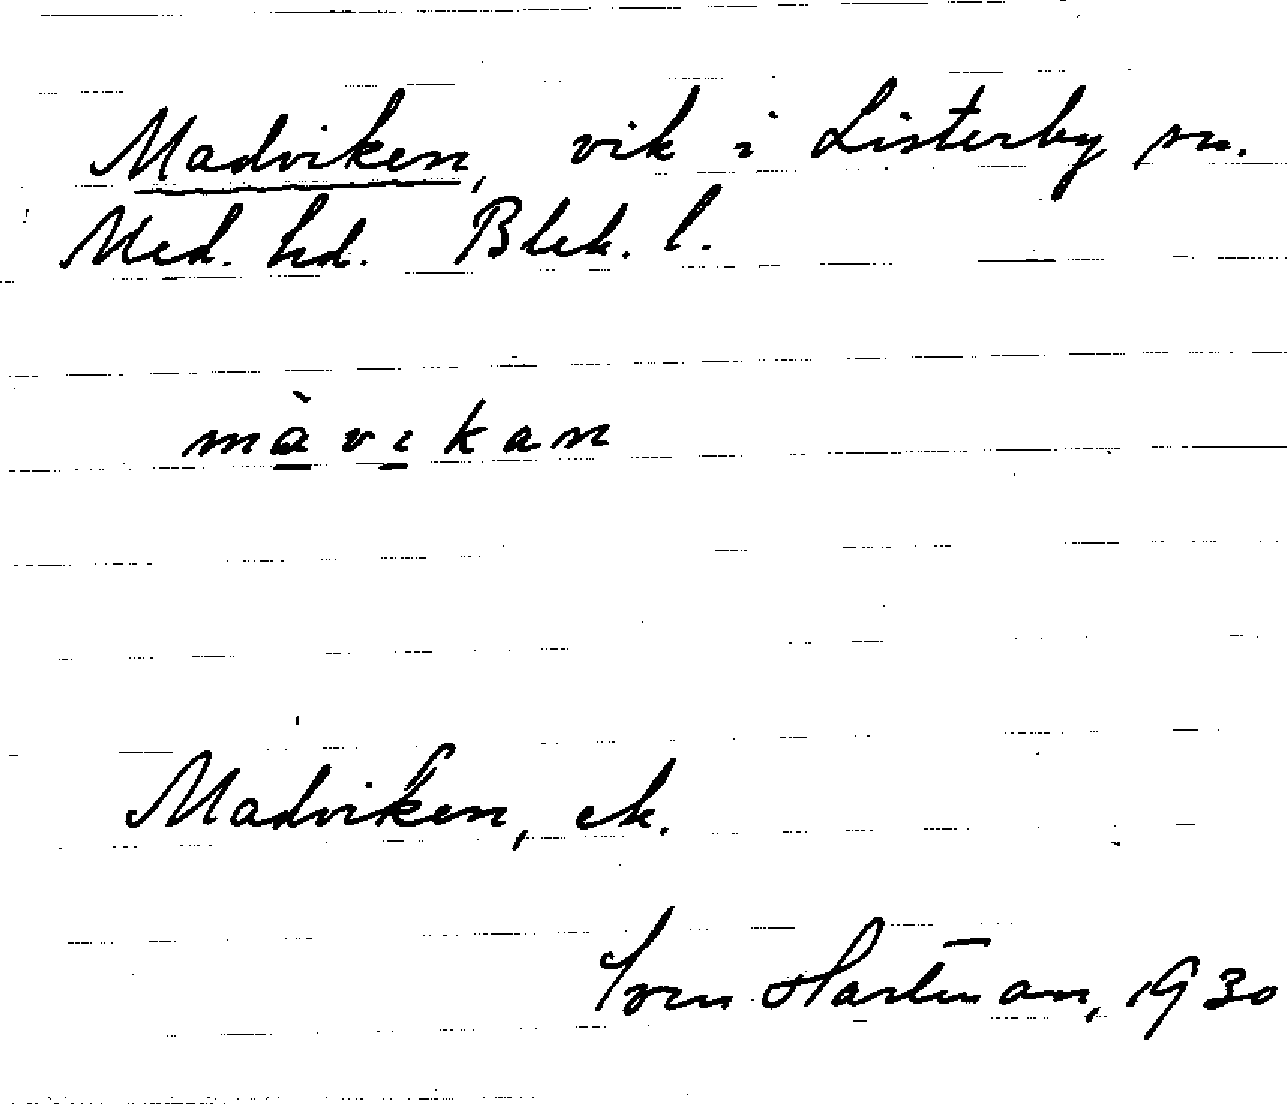 Madviken, vik i Listerby sn.
Med. hd. Blek. l.
màvikan
Madviken, ek.
Sven Hartman, 1930